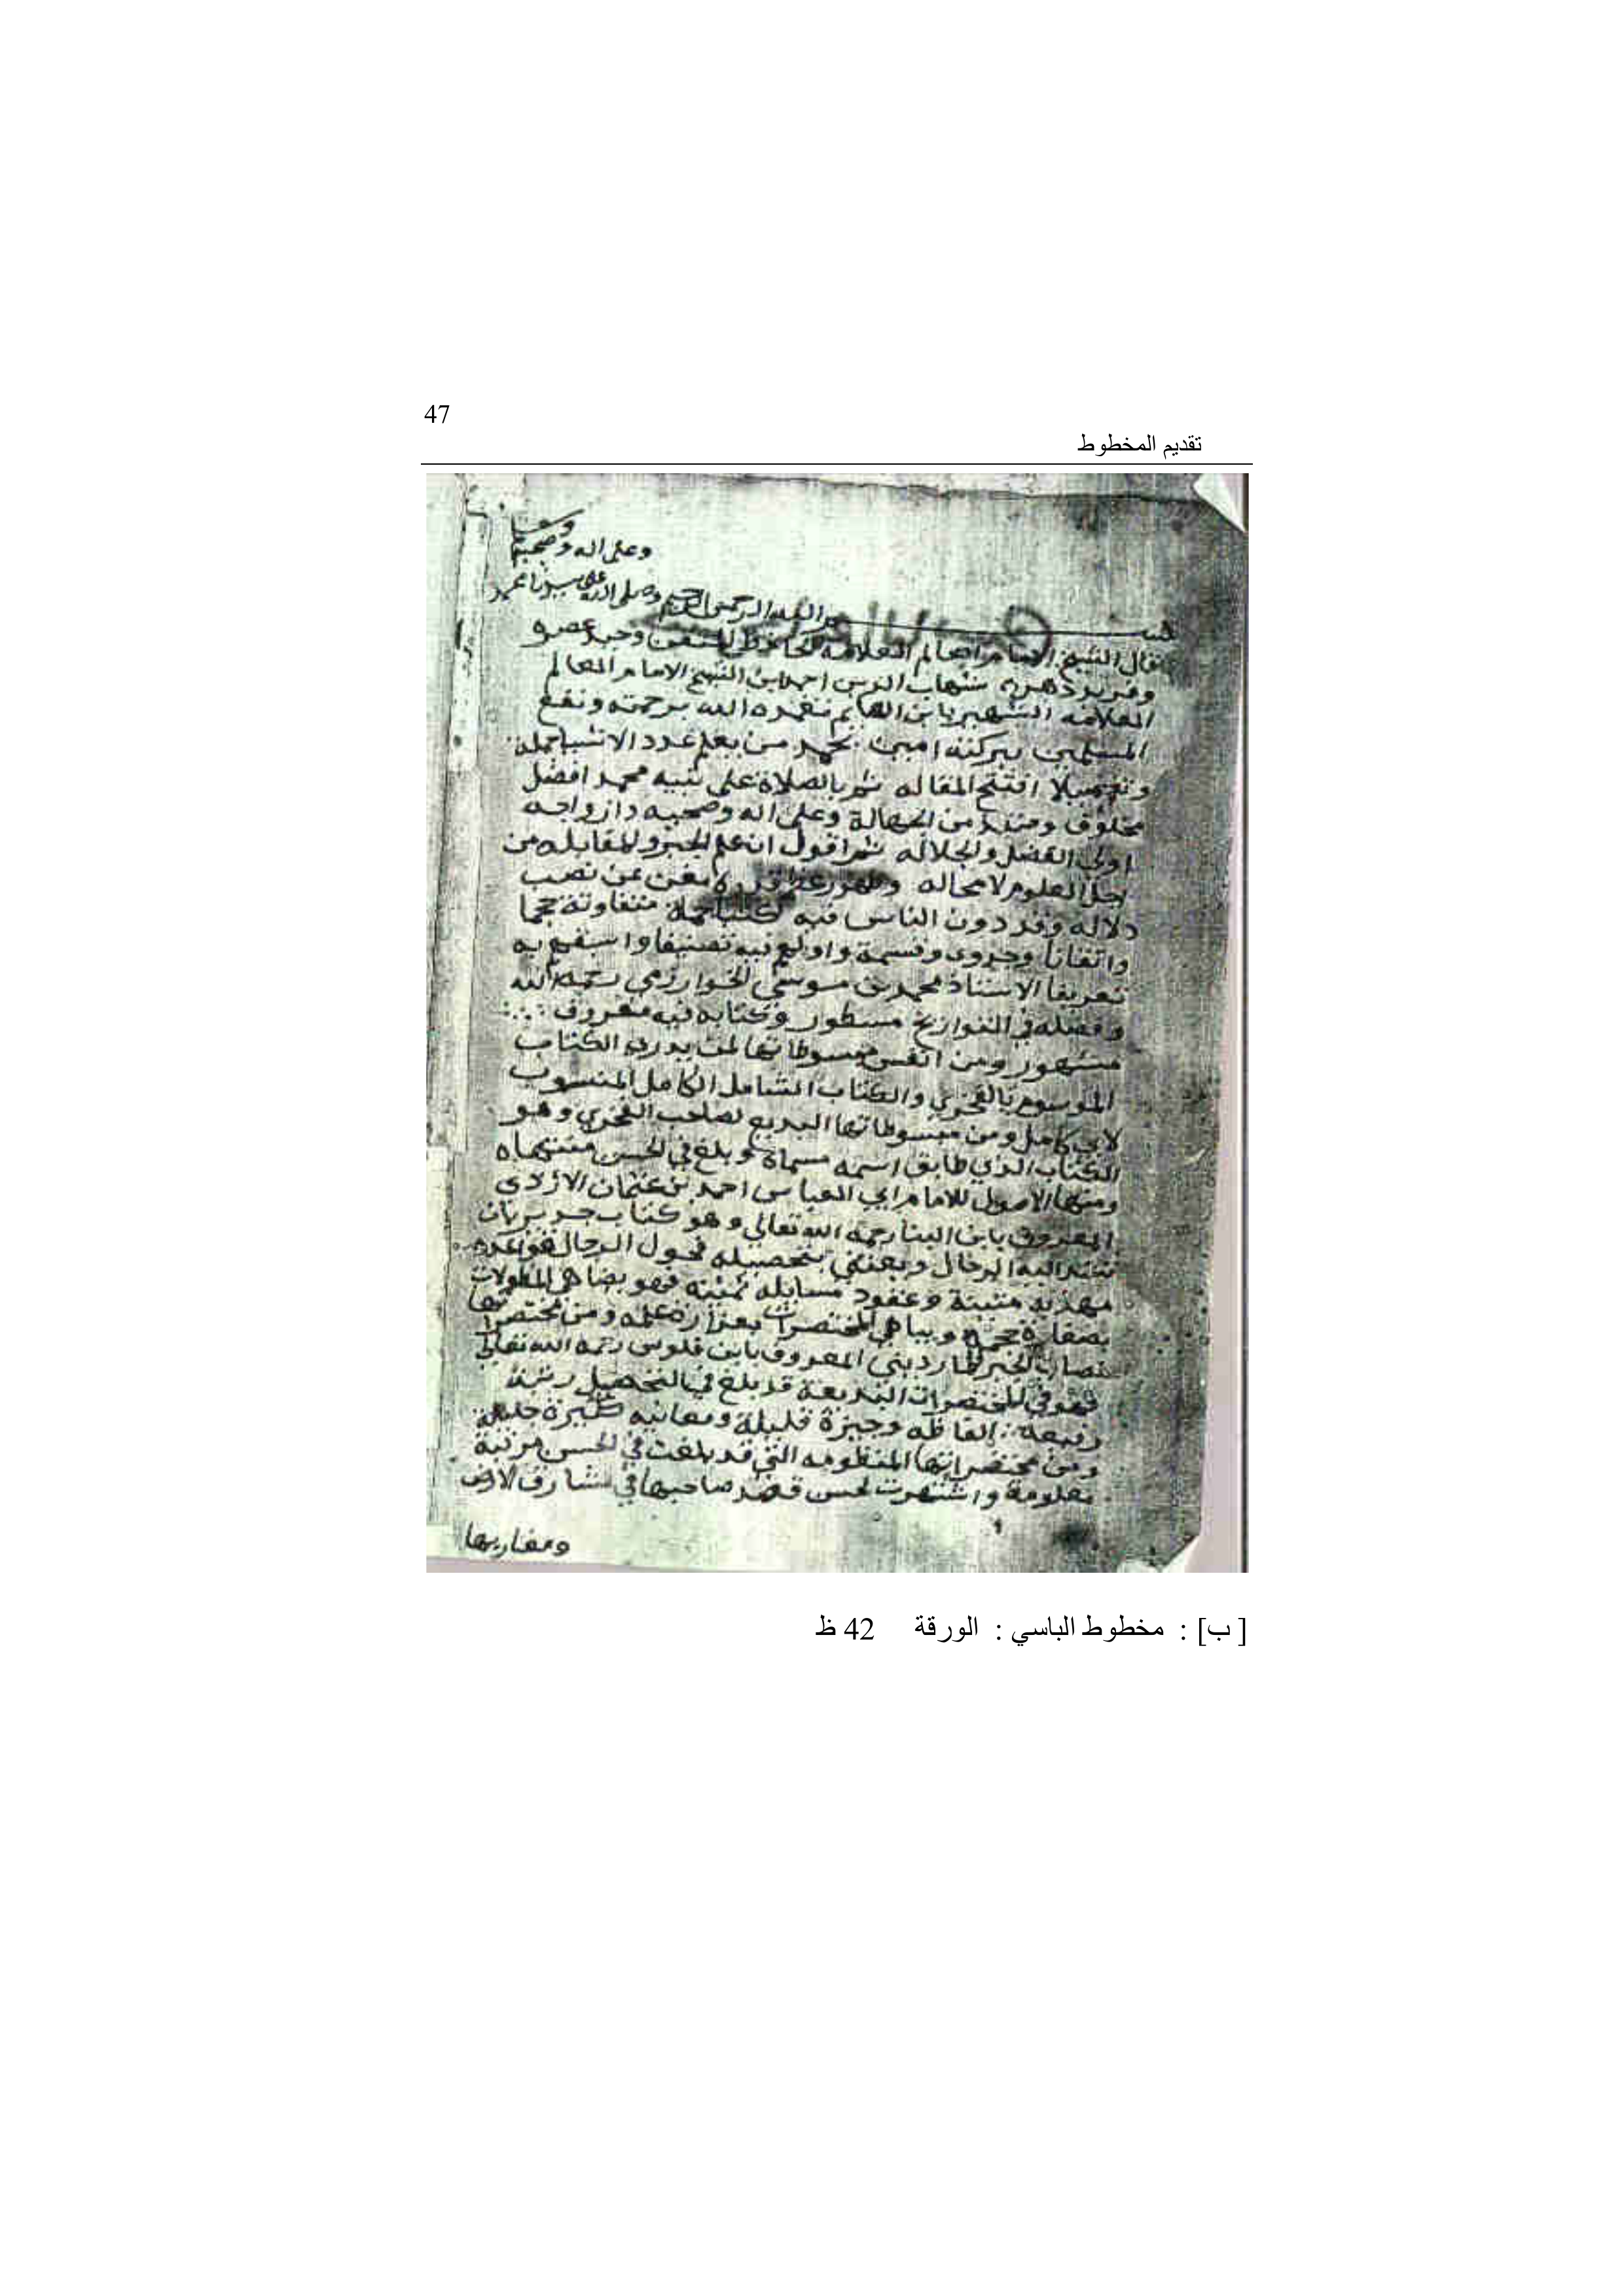 47
تقديم المخطوط
وعلى اله وصحبه
بسم الله الرحمن الرحيم وصلى الله على سيدنا محمد
قال الشيخ الامام العالم العلامه الحافظ المتقن وحيد عصره
وفريد دهره شهاب الدين احمد ابن الشيخ الامام العالم
العلامه الشهير بابن الهايم تغمده الله برحمته ونفع
المسلمين ببركته امين بحمد من يعلم عدد الاشيا جملة
وتفصيلا افتتح المقاله ثم بالصلاة على نبيه محمد افضل
مخلوق ومنقذ من الجهالة وعلى اله وصحبه وازواجه
اولى الفضل والجلاله ثم اقول ان علم الجبر والمقابله من
اجل العلوم لا محاله وظهور لا يغن عن نصب
دلاله وقد دون الناس فيه كتبا جمة متفاوتة حجما
واتقانا وجدوى وقسمة واو فيه تصنيفا به
تعريفا الاستاذ محمد بن موسى الخوارزمي رحمه الله
وفضله في التواريخ مسطور وكتابه فيه معروف
مشهور ومن انفس مبسوطاتها لمن يدريه الكتاب
الموسوم بالفخري والكتاب الشامل الكامل المنسوب
لابي كامل ومن مبسوطاتها البديع لصاحب الفخري وهو
الكتاب الذي طابق اسمه مسماه وبلغ في الحسن منتهاه
ومنها الاصول للامام ابي العباس احمد بن عثمان الازدى
المعروف بابن البنا رحمه الله تعالى وهو كتاب جدير بان
تشد اليه الرحال ويعتني بتحصيله فحول الرجال قواعده
مهذبه متينة وعقود مسايله ثمينه فهو يضاهي المطولات
بصغارة حجمه ويباهي المختصرات بغزارة علمه ومن مختصراتها
نصاب الجبر للمارديني المعروف بابن فلوس رحمه الله تعالى
فهو في المختصرات البديعة قد بلغ في التحصيل رتبة
رفيعة الفاظه وجيزة قليلة ومعانيه كثيرة جليلة
ومن مختصراتها المنظومه التي قد بلغت في الحسن مرتبة
معلومة واشتهرت لحسن قصد صاحبها في مشارق الارض
ومغاربها
[ ب] : مخطوط الباسي : الورقة 42 ظ